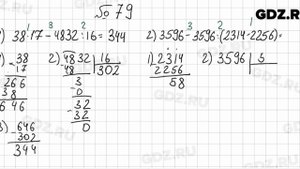 № 79
GDZ.RU
1 3 2
38·17-4832:16=344
3 2 1
2) 3596-3596:(2314-2256)=
38
17
266
38
646
2) 4832 16
48 302
3
0
32
32
0
646
302
344
1) 2314
2256
58
2) 3596 5